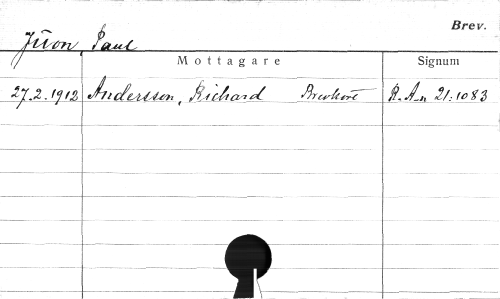 Brev.
Juon, Paul
Mottagare Signum
27.2.1912 Andersson, Richard Brevkort R.A. 21:1083